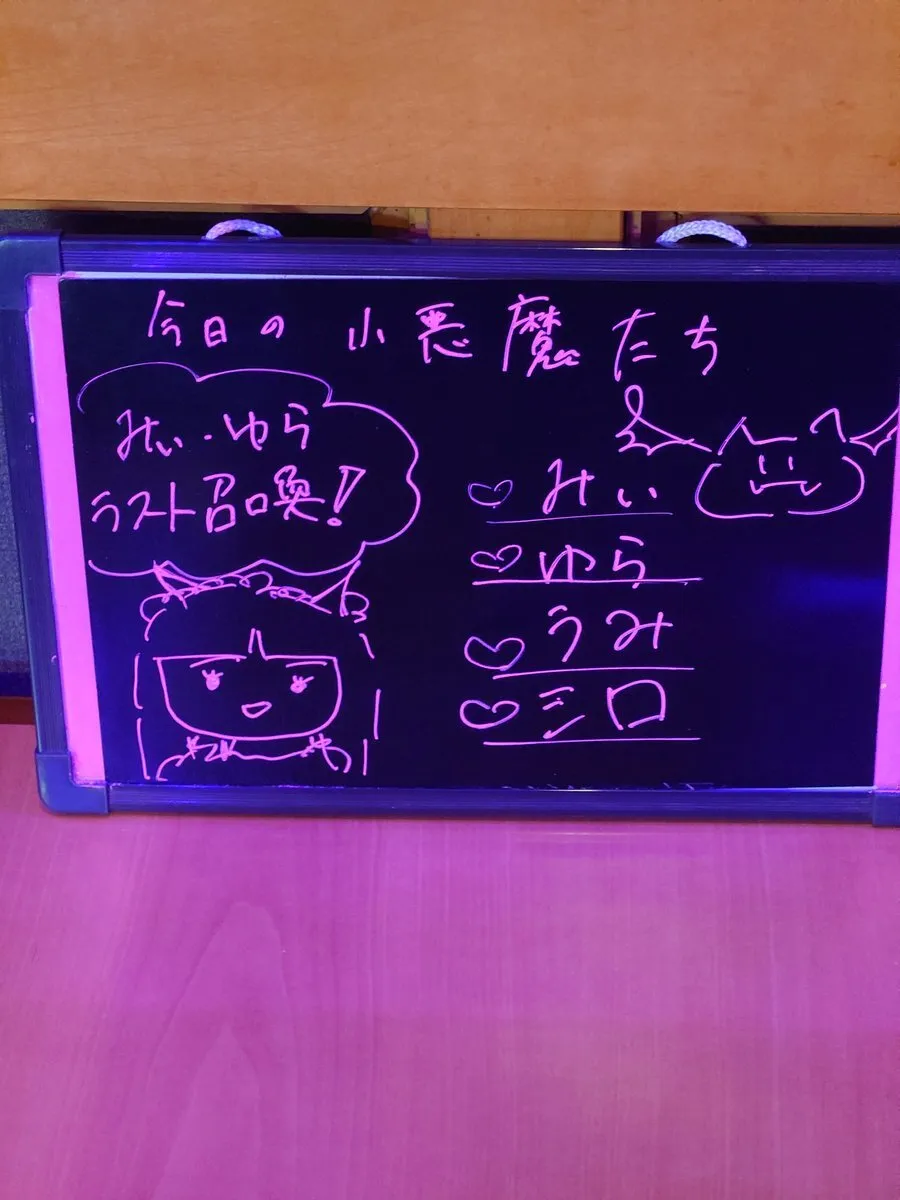 今日の 小悪魔たち
みぃ・ゆら
ラスト召喚!
みぃ
ゆら
うみ
シロ